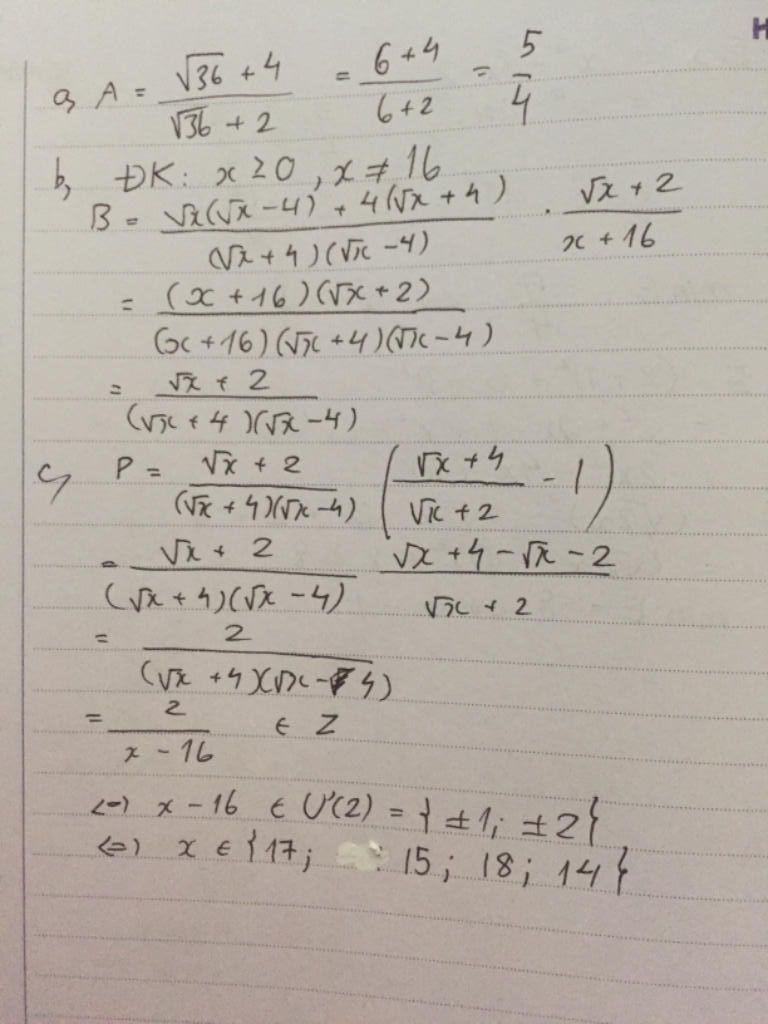 H
a, A = (√36 + 4)/(√36 + 2) = (6 + 4)/(6 + 2) = 5/4
b, ĐK: x ≥ 0, x ≠ 16
B = (√x(√x - 4) + 4(√x + 4))/((√x + 4)(√x - 4)) . (√x + 2)/(x + 16)
= ((x + 16)(√x + 2))/((x + 16)(√x + 4)(√x - 4))
= (√x + 2)/((√x + 4)(√x - 4))
c, P = (√x + 2)/((√x + 4)(√x - 4)) ((√x + 4)/(√x + 2) - 1)
= (√x + 2)/((√x + 4)(√x - 4)) (√x + 4 - √x - 2)/(√x + 2)
= 2/((√x + 4)(√x - 4))
= 2/(x - 16) ∈ Z
⇔ x - 16 ∈ Ư(2) = {±1; ±2}
⇔ x ∈ {17; 15; 18; 14}